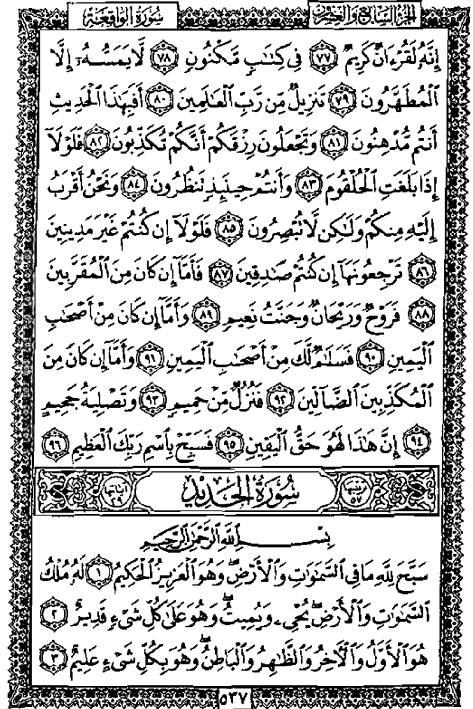 سُورَةُ الوَاقِعَةِ الجُزْءُ السَّابِعُ وَالعِشْرُونَ
إِنَّهُۥ لَقُرْءَانٌ كَرِيمٌ ٧٧ فِى كِتَٰبٍ مَّكْنُونٍ ٧٨ لَّا يَمَسُّهُۥٓ إِلَّا
ٱلْمُطَهَّرُونَ ٧٩ تَنزِيلٌ مِّن رَّبِّ ٱلْعَٰلَمِينَ ٨٠ أَفَبِهَٰذَا ٱلْحَدِيثِ
أَنتُم مُّدْهِنُونَ ٨١ وَتَجْعَلُونَ رِزْقَكُمْ أَنَّكُمْ تُكَذِّبُونَ ٨٢ فَلَوْلَآ
إِذَا بَلَغَتِ ٱلْحُلْقُومَ ٨٣ وَأَنتُمْ حِينَئِذٍ تَنظُرُونَ ٨٤ وَنَحْنُ أَقْرَبُ
إِلَيْهِ مِنكُمْ وَلَٰكِن لَّا تُبْصِرُونَ ٨٥ فَلَوْلَآ إِن كُنتُمْ غَيْرَ مَدِينِينَ
٨٦ تَرْجِعُونَهَآ إِن كُنتُمْ صَٰدِقِينَ ٨٧ فَأَمَّآ إِن كَانَ مِنَ ٱلْمُقَرَّبِينَ
٨٨ فَرَوْحٌ وَرَيْحَانٌ وَجَنَّتُ نَعِيمٍ ٨٩ وَأَمَّآ إِن كَانَ مِنْ أَصْحَٰبِ
ٱلْيَمِينِ ٩٠ فَسَلَٰمٌ لَّكَ مِنْ أَصْحَٰبِ ٱلْيَمِينِ ٩١ وَأَمَّآ إِن كَانَ مِنَ
ٱلْمُكَذِّبِينَ ٱلضَّآلِّينَ ٩٢ فَنُزُلٌ مِّنْ حَمِيمٍ ٩٣ وَتَصْلِيَةُ جَحِيمٍ
٩٤ إِنَّ هَٰذَا لَهُوَ حَقُّ ٱلْيَقِينِ ٩٥ فَسَبِّحْ بِٱسْمِ رَبِّكَ ٱلْعَظِيمِ ٩٦
ترتيبها ٥٧ سُورَةُ الحَدِيدِ آياتها ٢٩
بِسْمِ ٱللَّهِ ٱلرَّحْمَٰنِ ٱلرَّحِيمِ
سَبَّحَ لِلَّهِ مَا فِى ٱلسَّمَٰوَٰتِ وَٱلْأَرْضِ وَهُوَ ٱلْعَزِيزُ ٱلْحَكِيمُ ١ لَهُۥ مُلْكُ
ٱلسَّمَٰوَٰتِ وَٱلْأَرْضِ يُحْىِۦ وَيُمِيتُ وَهُوَ عَلَىٰ كُلِّ شَىْءٍ قَدِيرٌ ٢
هُوَ ٱلْأَوَّلُ وَٱلْءَاخِرُ وَٱلظَّٰهِرُ وَٱلْبَاطِنُ وَهُوَ بِكُلِّ شَىْءٍ عَلِيمٌ ٣
٥٣٧